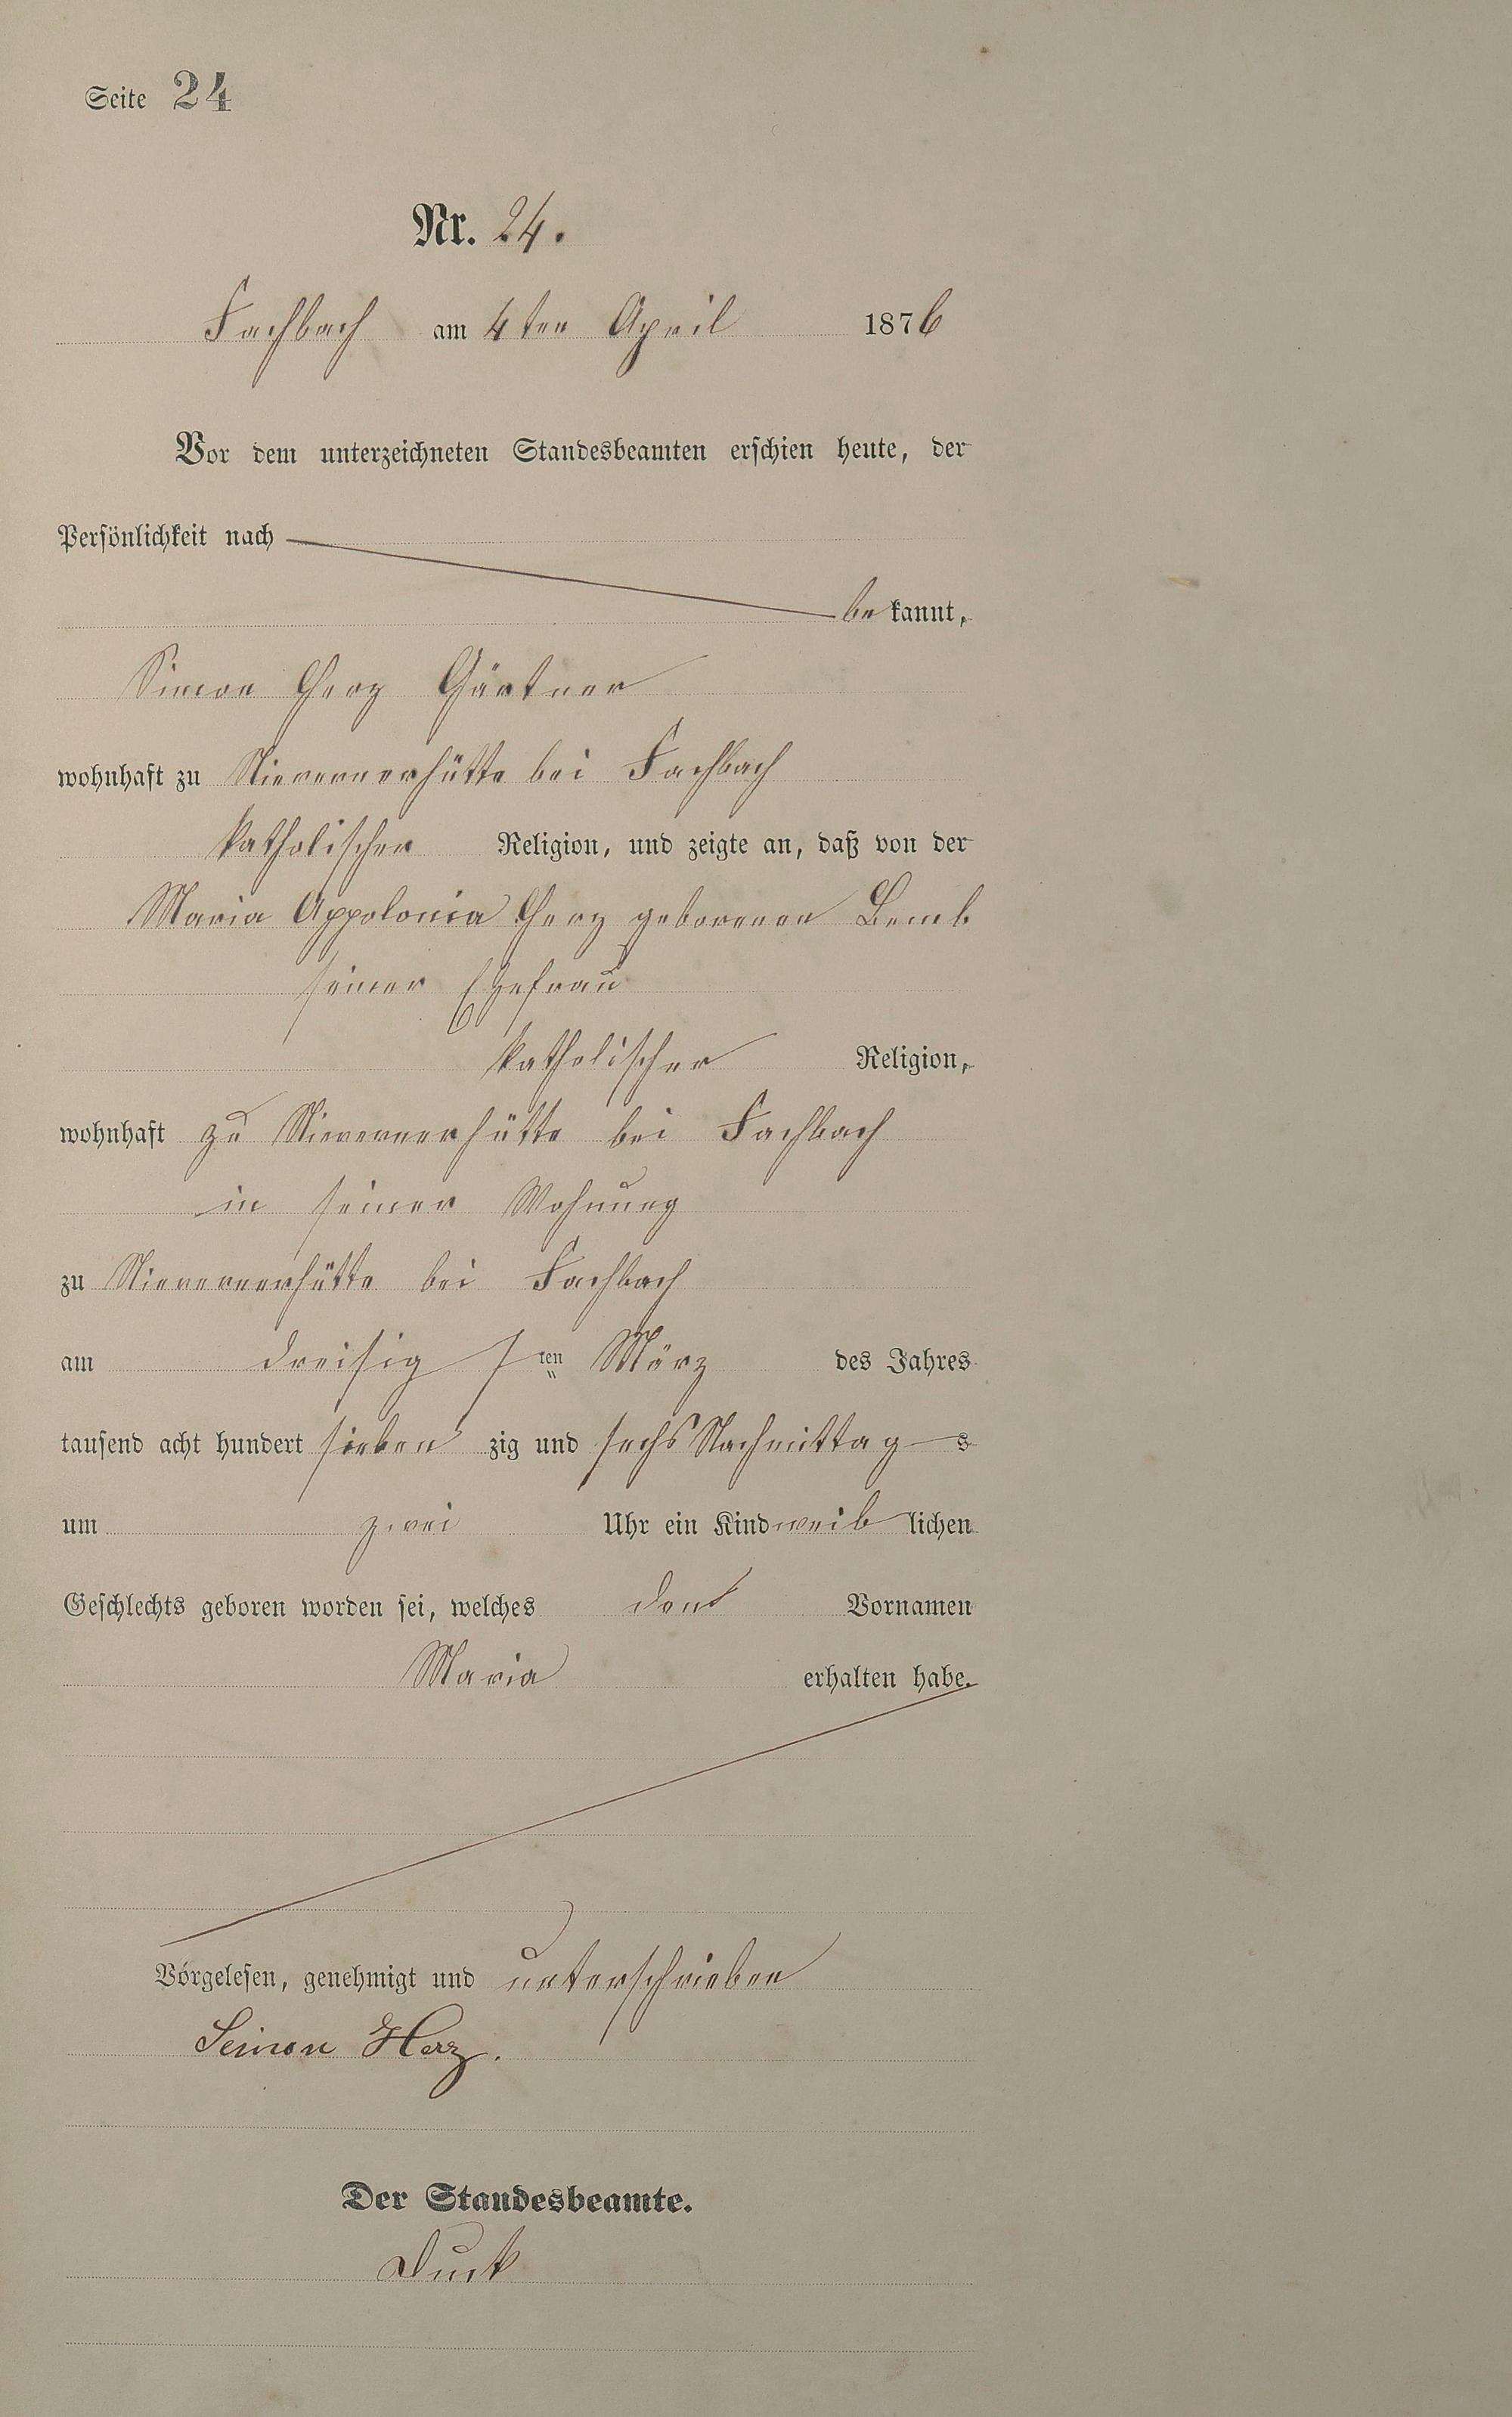 Seite 24
Nr. 24.
Fachbach am 4ten April 1876
Vor dem unterzeichneten Standesbeamten erschien heute, der
Persönlichkeit nach
bekannt,
Simon Herz Gärtner
wohnhaft zu Nievernerhütte bei Fachbach
katholischer Religion, und zeigte an, daß von der
Maria Appolonia Herz geborenen Lemb
seiner Ehefrau
katholischer Religion,
wohnhaft zu Nievernerhütte bei Fachbach
in seiner Wohnung
zu Nievernerhütte bei Fachbach
am dreisig sten März des Jahres
tausend acht hundert sieben zig und sechs Nachmittags
um zwei Uhr ein Kind weiblichen
Geschlechts geboren worden sei, welches den Vornamen
Maria erhalten habe.
Vorgelesen, genehmigt und unterschrieben
Seimon Herz.
Der Standesbeamte.